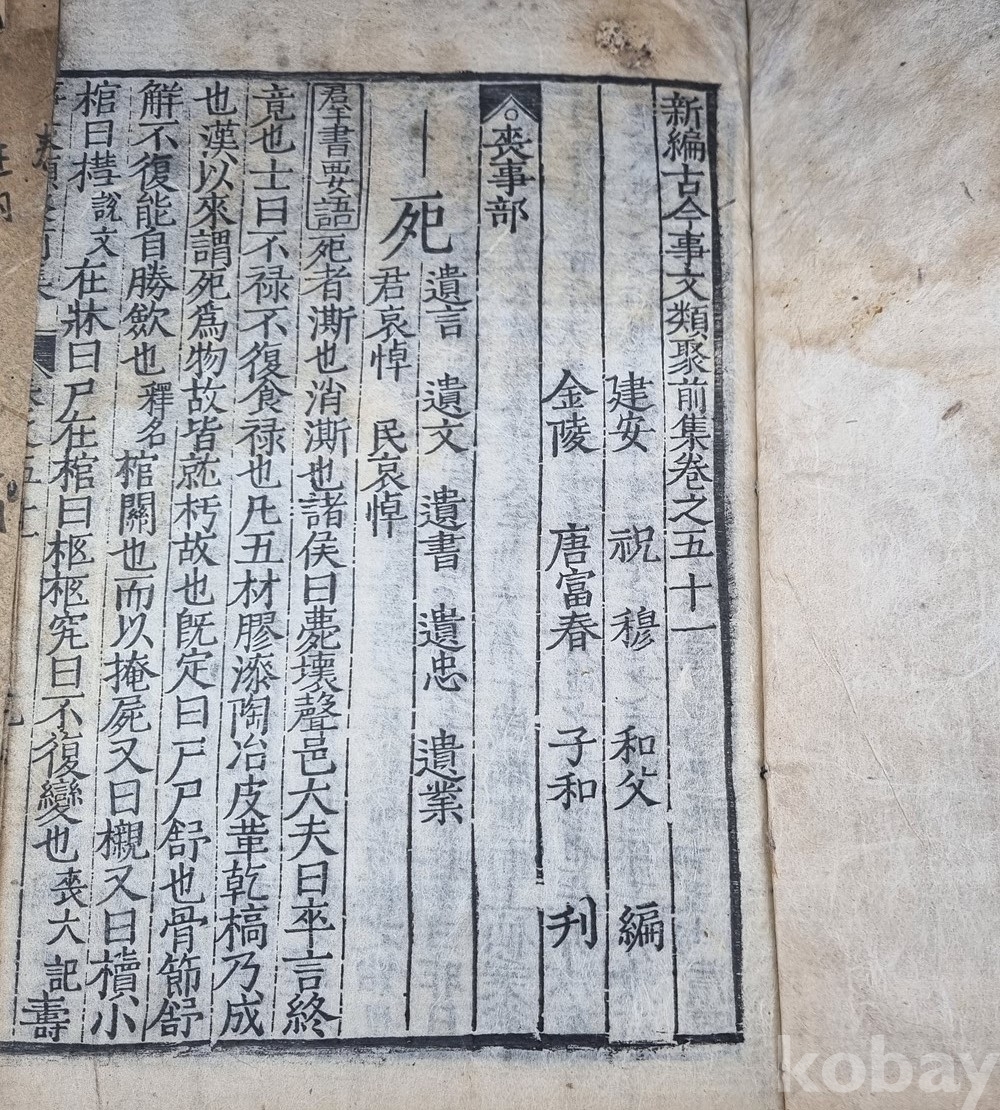 新編古今事文類聚前集卷之五十一
建安 祝 穆 和父 編
金陵 唐富春 子和 刋
○喪事部
死 遺言 遺文 遺書 遺忠 遺業
君哀悼 民哀悼
羣書要語 死者澌也消澌也諸侯曰薨壞聲邑大夫曰卒言終
竟也士曰不禄不復食禄也凡五材膠漆陶冶皮革乾槁乃成
也漢以來謂死爲物故皆就朽故也旣定曰尸尸舒也骨節舒
觧不復能自勝歛也 釋名 棺關也而以掩屍又曰櫬又曰櫝小
棺曰槥 說文 在牀曰尸在棺曰柩柩究曰不復變也 喪大記 壽
kobay